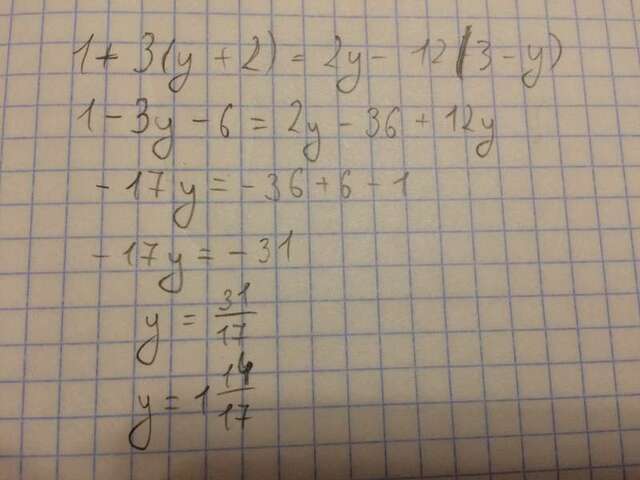 1 + 3(y + 2) = 2y - 12(3 - y)
1 - 3y - 6 = 2y - 36 + 12y
- 17y = - 36 + 6 - 1
- 17y = - 31
y = 31/17
y = 1 14/17